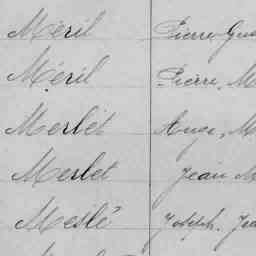 Méril Pierre Gus
Méril Pierre, M
Merlet Ange, M
Merlet Jean M
Meslé Joseph, Jea